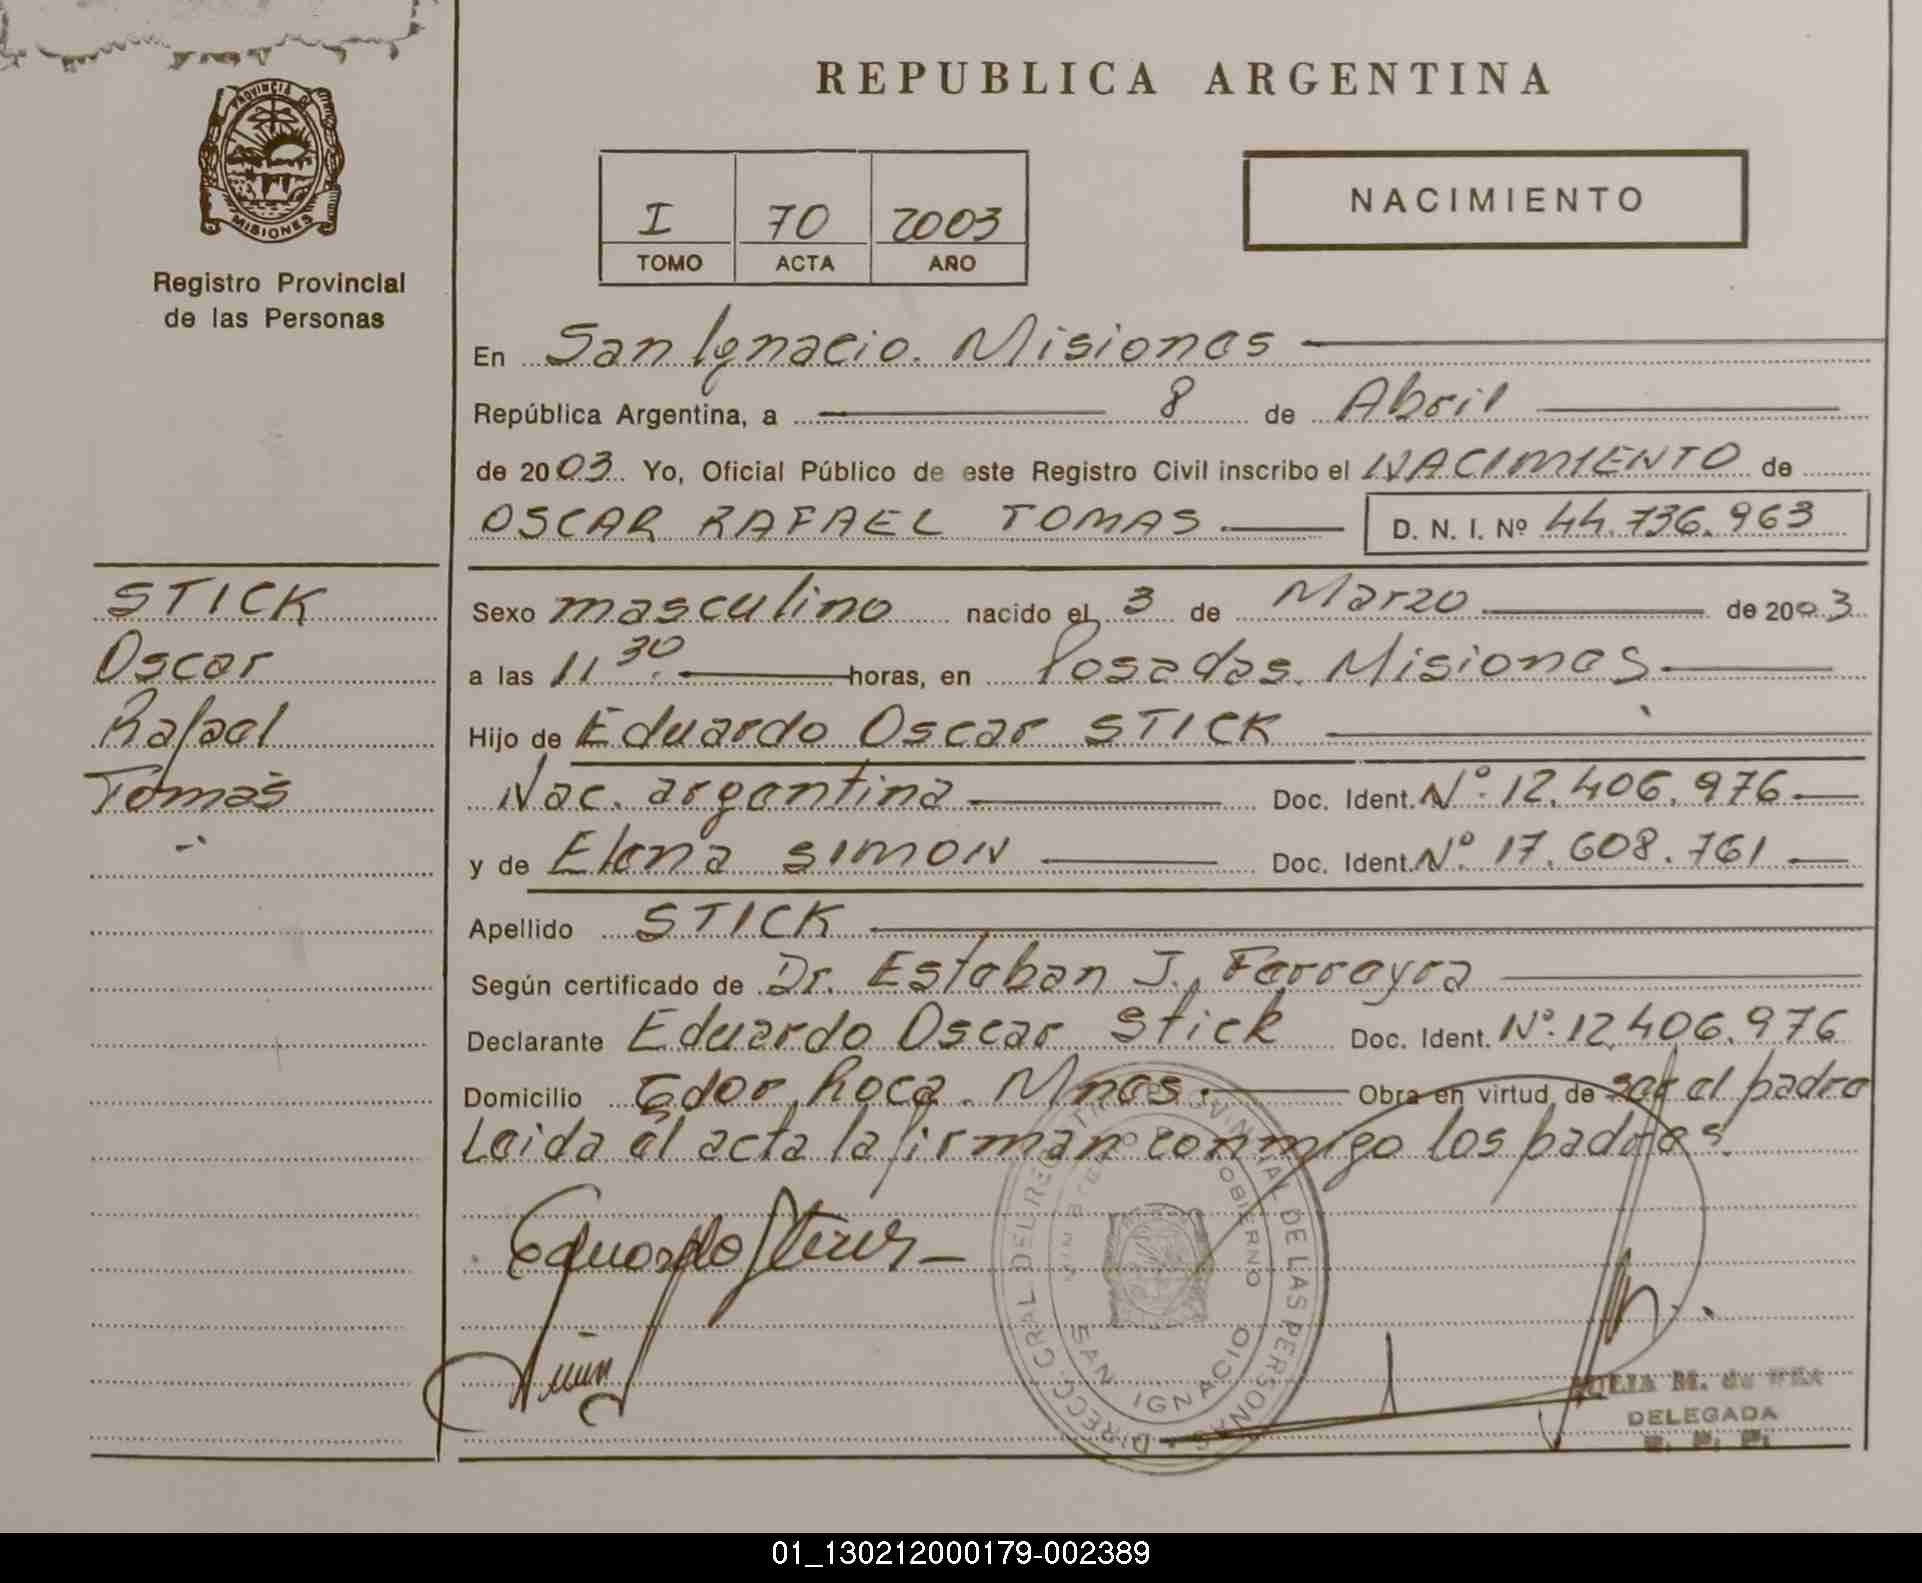 REPUBLICA ARGENTINA
PROVINCIA DE
MISIONES
Registro Provincial
de las Personas
I 70 2003
TOMO ACTA AÑO
NACIMIENTO
En San Ignacio. Misiones
República Argentina, a 8 de Abril
de 2003 Yo, Oficial Público de este Registro Civil inscribo el NACIMIENTO de
OSCAR RAFAEL TOMAS D. N. I. Nº 44.736.963
STICK
Oscar
Rafael
Tomás
Sexo masculino nacido el 3 de Marzo de 2003
a las 11 30 horas, en Posadas. Misiones
Hijo de Eduardo Oscar STICK
Nac. argentina Doc. Ident. Nº 12.406.976
y de Elena SIMON Doc. Ident. Nº 17.608.761
Apellido STICK
Según certificado de Dr. Esteban J. Ferreyra
Declarante Eduardo Oscar Stick Doc. Ident. Nº 12.406.976
Domicilio Gdor. Roca. Mnes. Obra en virtud de ser el padre
Leida el acta la firman conmigo los padres.
DIRECC. GRAL DEL REG. PROVINCIAL DE LAS PERSONAS
GOBIERNO
SAN IGNACIO
M. de
DELEGADA
01_130212000179-002389